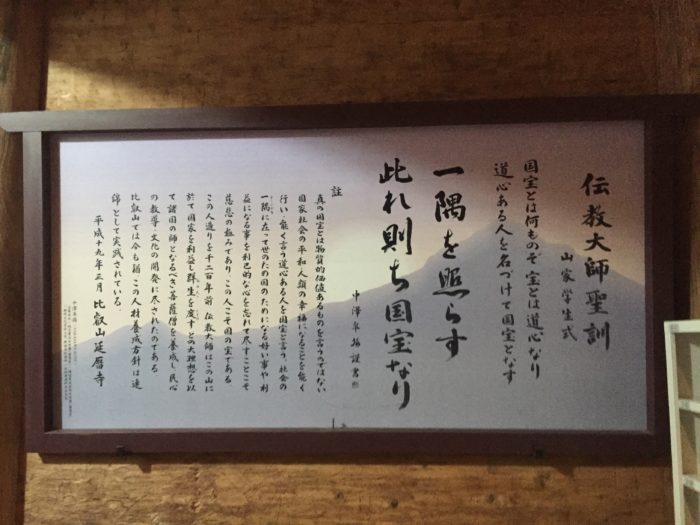 伝教大師聖訓
山家学生式
国宝とは何ものぞ 宝とは道心なり
道心ある人を名づけて国宝となす
一隅を照らす
此れ則ち国宝なり
註
真の国宝とは物質的価値あるものを言うのではない
国家社会の平和 人類の幸福になることを能く
行い 能く言う道心ある人を国宝と言う、社会の
一隅に在って世のため国のためになる好い事や利
益になる事を利己的な心を忘れて尽すことこそ
慈悲の極みであり、この人こそ国の宝である
この人造りを千二百年前 伝教大師はこの山に
於て国家を利益し群生を度すとの大理想を以
て諸国の師となるべき菩薩僧を養成し民心
の教導、文化の開発に尽されたのである
比叡山では今も猶この人材養成方針は連
綿として実践されている。
平成十九年三月 比叡山延暦寺